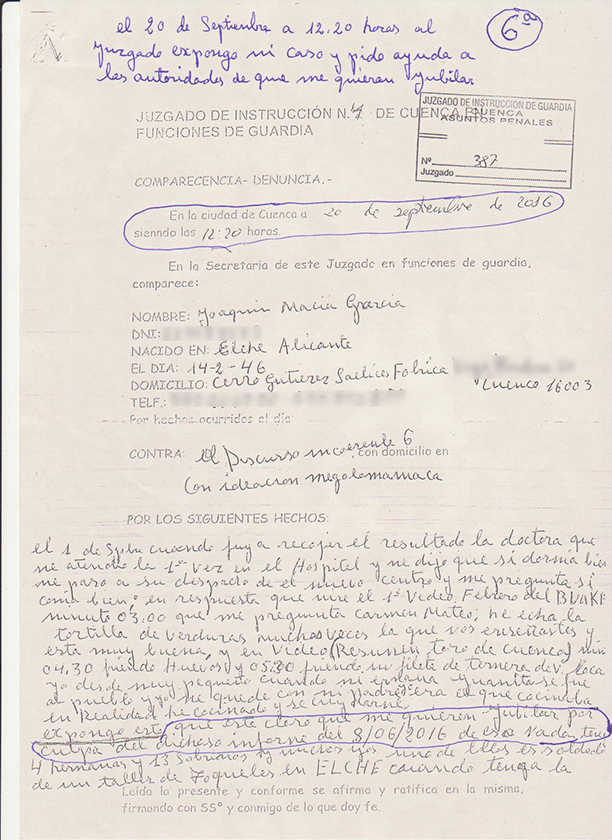 el 20 de Septiembre a 12.20 horas al
Juzgado expongo mi caso y pido ayuda a
las autoridades de que me quieren Yubilar
6ª
JUZGADO DE INSTRUCCIÓN N.4 DE CUENCA EN
FUNCIONES DE GUARDIA
JUZGADO DE INSTRUCCION DE GUARDIA
CUENCA
ASUNTOS PENALES
Nº 387
Juzgado
COMPARECENCIA- DENUNCIA.-
En la ciudad de Cuenca a 20 de septiembre de 2016
sienndo las 12:20 horas.
En la Secretaria de este Juzgado en funciones de guardia,
comparece:
NOMBRE: Joaquin Maciá Gracia
DNI:
NACIDO EN: Elche Alicante
EL DIA: 14-2-46
DOMICILIO: Cerro Gutierez Saelices Fabrica
Cuenca 16003
TELF.:
Por hechos ocurridos el día:
CONTRA: el Discurso incoerente 6, con domicilio en
Con ideacion megalomaniaca
POR LOS SIGUIENTES HECHOS:
el 1 de Sptbre cuando fuy a recojer el resultado la doctora que
me atendio la 1ª Vez en el Hospital y me dijo que si dormia bien
me paso a su despacho de el nuevo centro y me pregunta si
comia bien, en respuesta que mire el 1º Video, Febrero del
minuto 03.00 que me pregunta Carmen Mateo; he echa la
tortilla de verduras muchas veces la que vos enseñastes y
esta muy buena, y en Video (Resumen toro de cuenca) mini
04.30 friendo Huevos y 05.30 friendo un filete de ternera de V. loca
yo desde muy pequeño cuando mi ermana Juanita se fue
al pueblo y yo me quede con mi padre era el que cocinaba
en Realidad he cocinado y se cuydarme.
expongo esto que esta claro que me quieren Yubilar por
culpa del dichoso informe del 8/06/2016 de eso Nada, tengo
4 hermanas y 13 sobrinos y unchos yos uno de ellos es soldado
de un taller de Troqueles en ELCHE cuando tenga la
Leída la presente y conforme se afirma y ratifica en la misma,
firmando con SSº y conmigo de lo que doy fe.